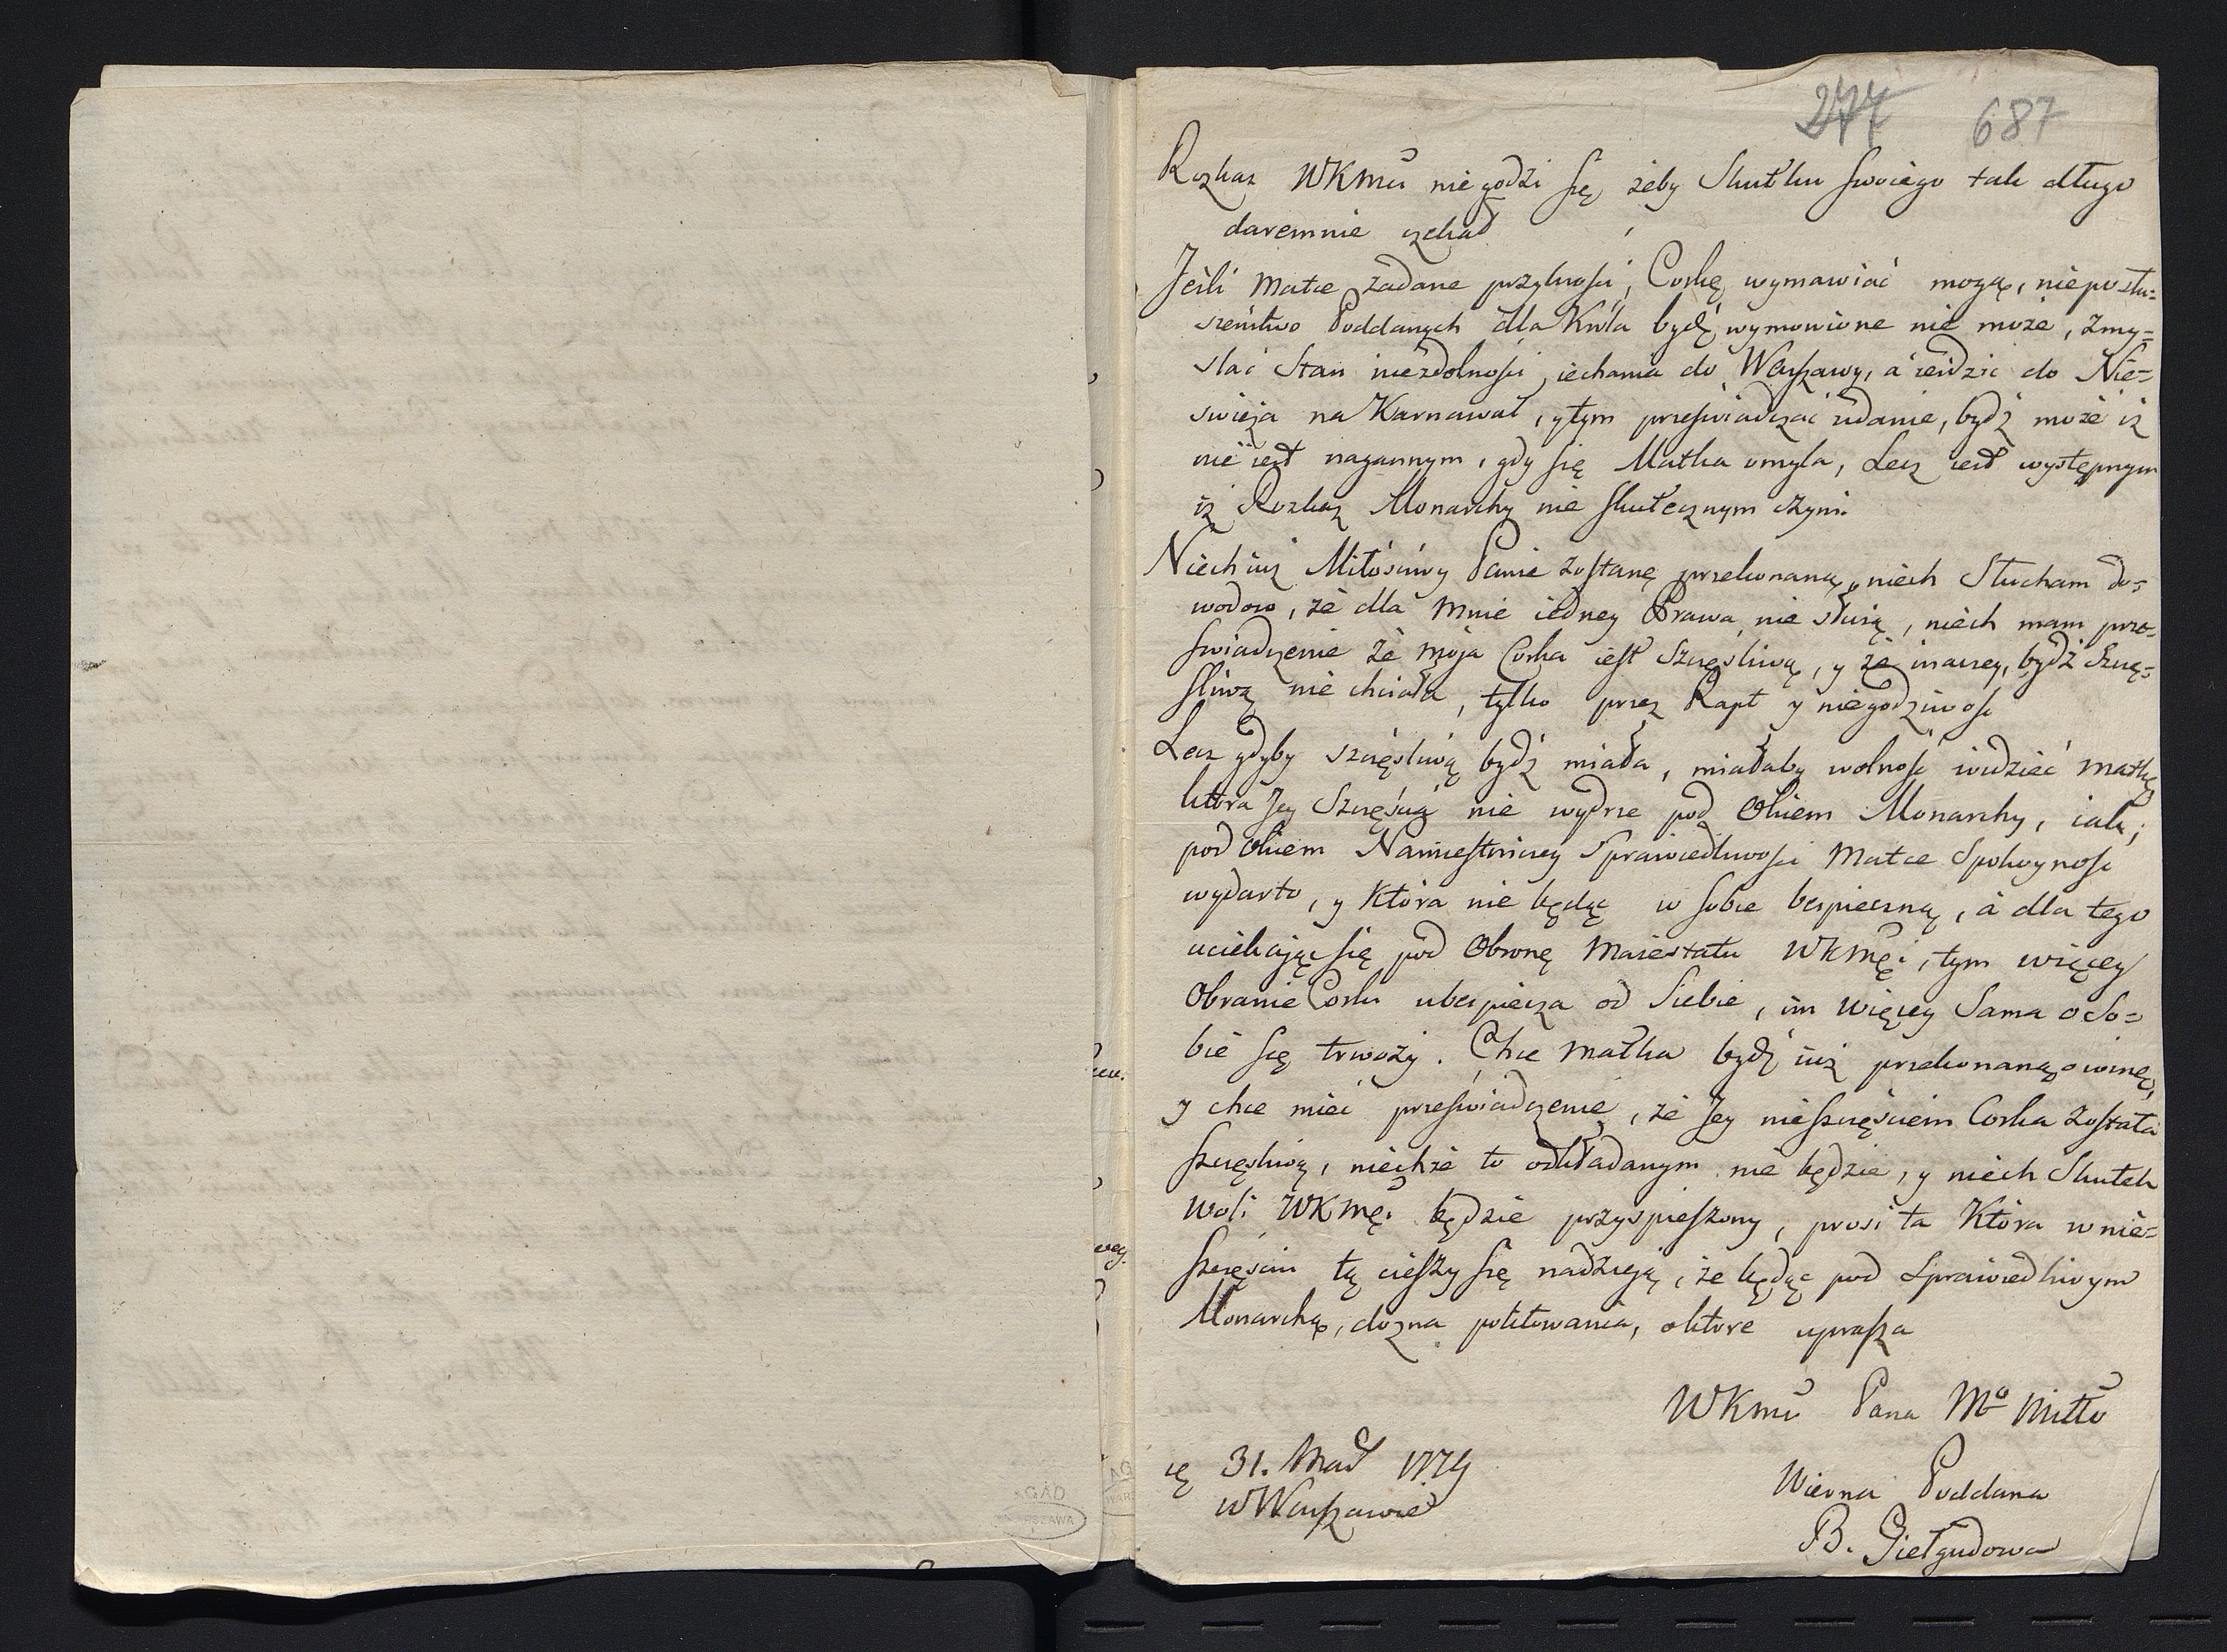 277 687
Rozkaz WKMci nie godzi się żeby Skutku swoiego tak długo
daremnie czekał
Jeśli Matce zadane przykrości, Corkę wymawiać mogą, nieposłu=
szeństwo Poddanych dla Króla bydź wymowione nie może, zmy=
slać Stan niezdolności iechania do Warszawy, a ieździc do Nie=
swieża na Karnawał, y tym przeświadczać udanie, bydź może iż
nie iest nagannym, gdy się Matka omyla, Lecz iest występnym
iż Rozkaz Monarchy nie skutecznym czyni.
Niech iuż Miłościwy Panie zostanę przekonaną, niech Słucham do=
wodow, że dla Mnie iedney Prawa nie służą, niech mam prze=
swiadczenie że moja Corka iest Szczęsliwą, y że inaczey bydź Szczę=
sliwą nie chciała, tylko przez Rapt y niegodziwosc
Lecz gdyby szczęsliwą bydź miała, miałaby wolnosc widzieć matkę
która Jey Szczęścia nie wydrze pod Okiem Monarchy, iak,
pod Okiem Namiestniczey Sprawiedliwosci Matce Spokoynosc
wydarto, y Która nie będąc w sobie bespieczną, a dla tego
uciekając się pod Obronę Maiestatu WKMci, tym więcey
Obranie Corki ubespiecza od Siebie, im więcey Sama o So=
bie się trwoży. Chce Matka bydź iuż przekonaną o winę,
y chce mieć przeświadczenie, że Jey nieszczęściem Corka została
szczęsliwą, niechże to odkładanym nie będzie, y niech Skutek
Woli WKMci będzie przyspieszony, prosi ta Która w nie=
szczęsciu tą cieszy się nadzieją, że będąc pod Sprawiedliwym
Monarchą, dozna politowania, o które uprasza
WKMci Pana Mo Miłło
31. 1779
w Warszawie
Wierna Poddana
B. Giełgudowa
AGAD
WARSZAWA